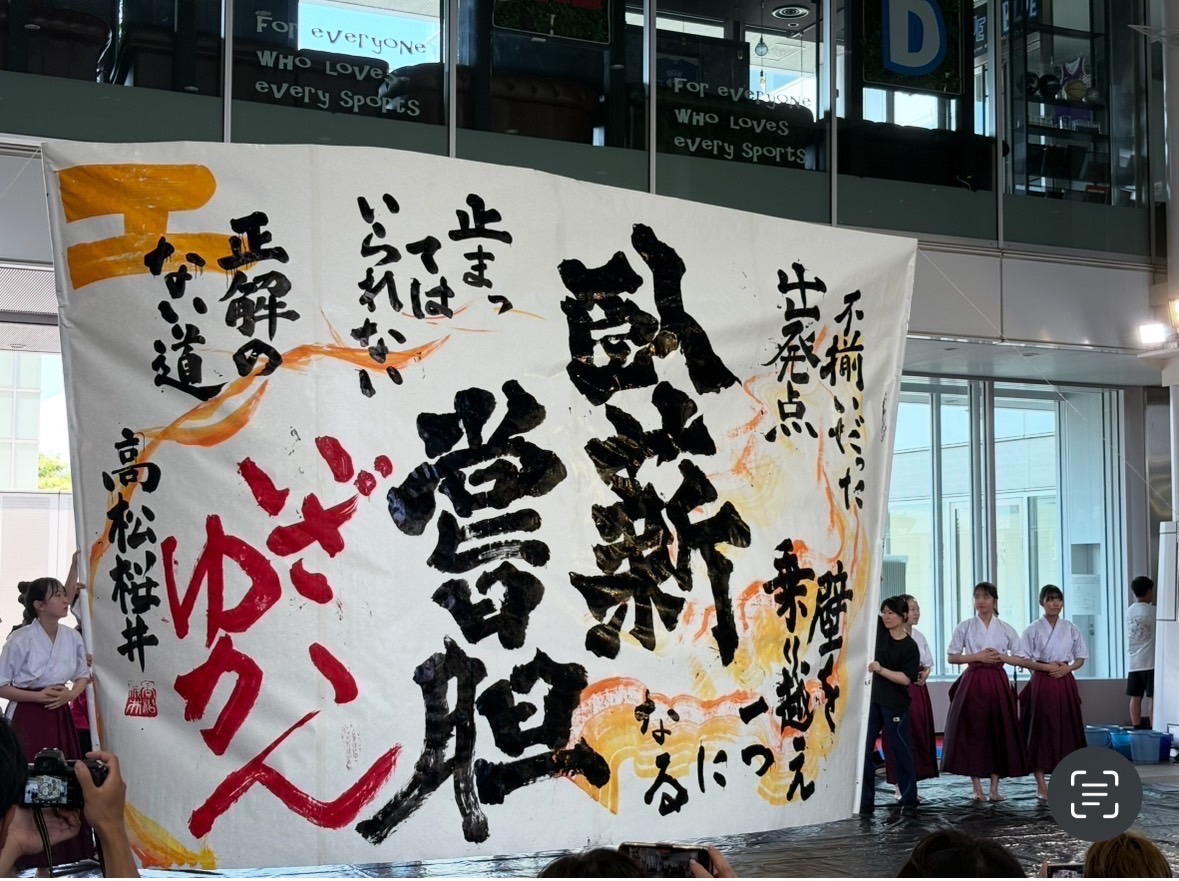 For everyone
WHO LOVES
every Sports
For everyone
WHO LOVES
every Sports
D
不揃いだった
出発点
壁を
乗り越え
一つ
に
なる
臥薪
嘗胆
止まっ
ては
いられない
正解の
ない道
いざ
ゆかん
高松桜井